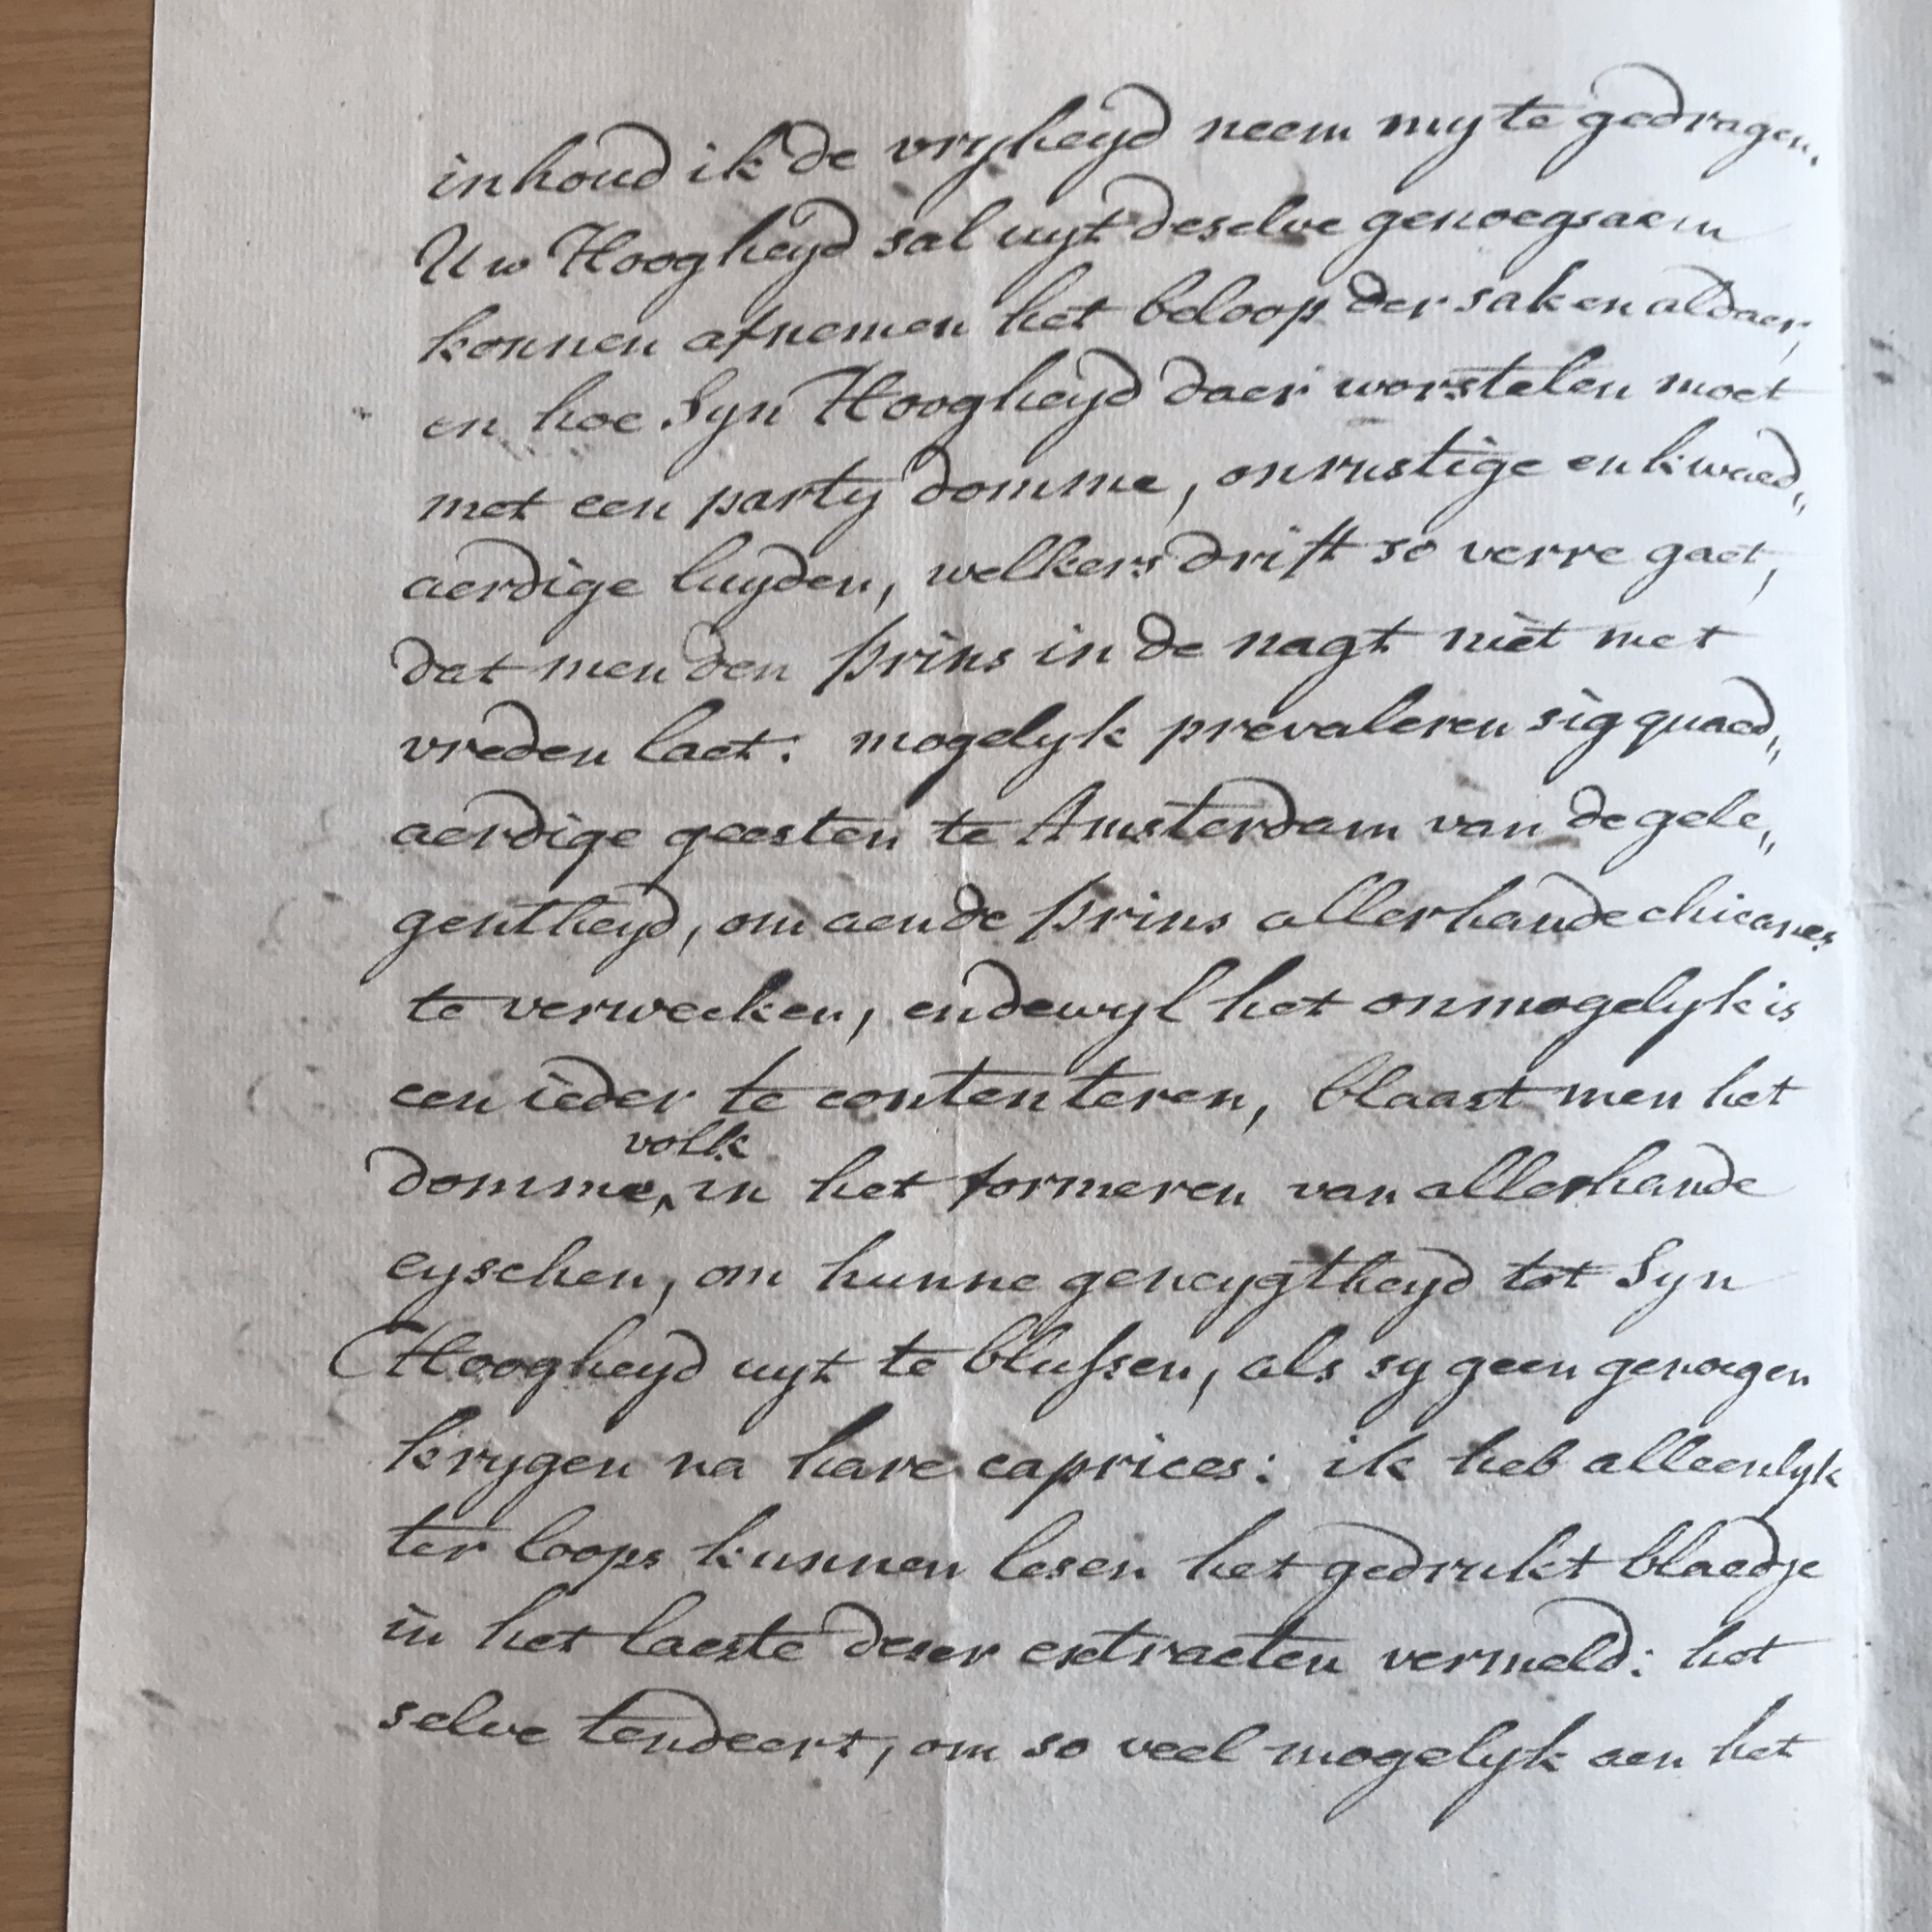 inhoud ik de vryheyd neem my te gedragen.
Uw Hoogheyd sal uyt deselve genoegsaem
konnen afnemen het beloop der saken aldaer,
en hoe Syn Hoogheyd daer worstelen moet
met een party domme, onrustige en kwaed„
aerdige luyden, welkers drift so verre gaet,
dat men den prins in de nagt niet met
vreden laet: mogelyk prevaleren sig quaed„
aerdige geesten te Amsterdam van de gele„
gentheyd, om aen de prins allerhande chicanes
te verwecken, en dewyl het onmogelyk is
een ieder te contenteren, blaast men het
domme volk in het formeren van allerhande
eyschen, om hunne geneygtheyd tot Syn
Hoogheyd uyt te blussen, als sy geen genoegen
krygen na hare caprices: ik heb alleenlyk
ter loops kunnen lesen het gedrukt blaedje
in het laeste deser extracten vermeld: het
selve tendeert, om so veel mogelyk aen het